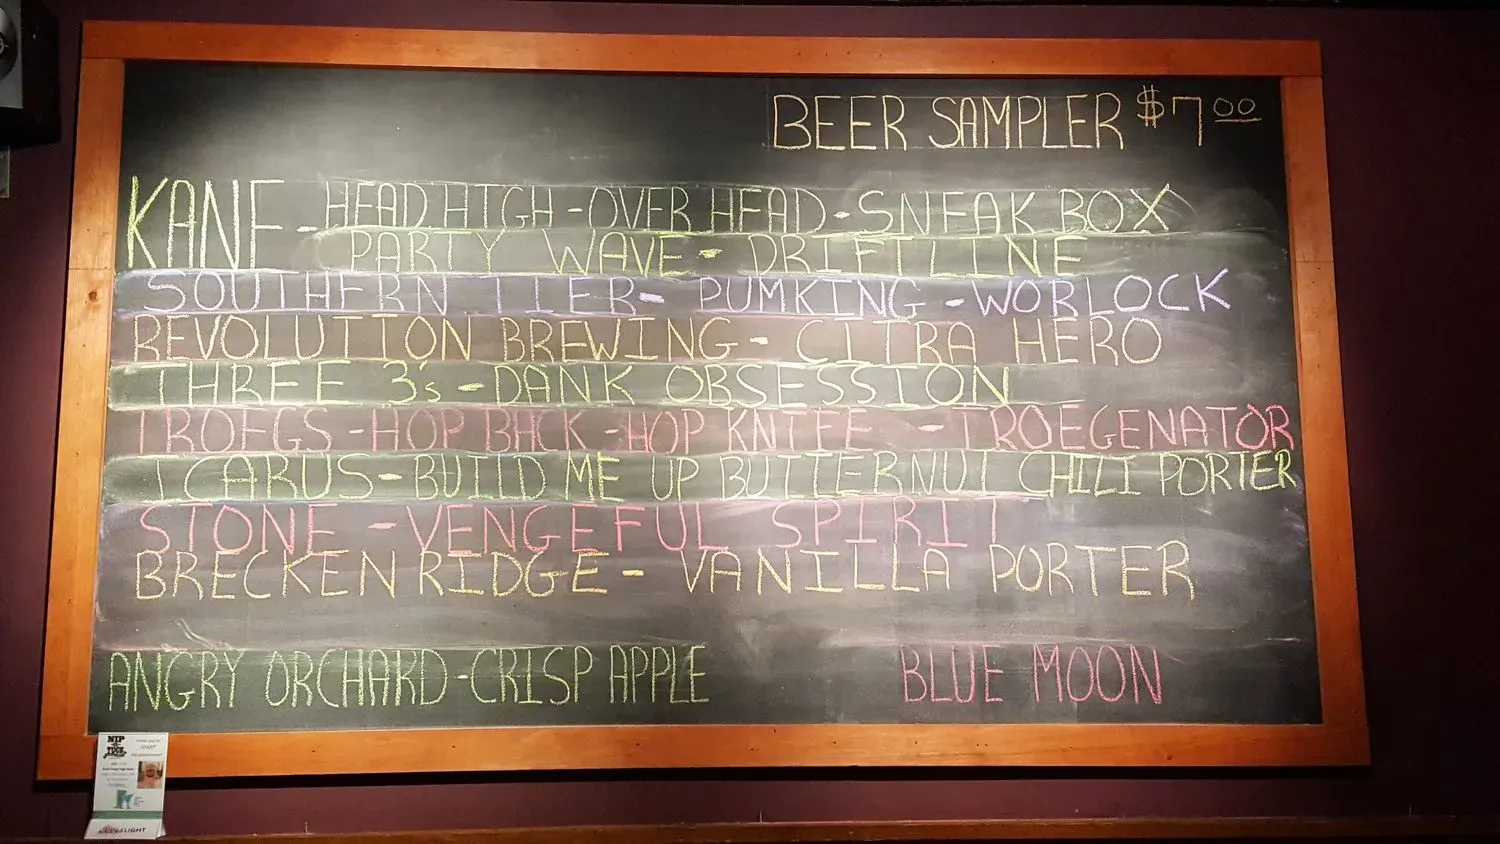 BEER SAMPLER $7.00
KANE - HEAD HIGH - OVER HEAD - SNEAK BOX
PARTY WAVE - DRIFTLINE
SOUTHERN TIER - PUMKING - WORLOCK
REVOLUTION BREWING - CITRA HERO
THREE 3's - DANK OBSESSION
TROEGS - HOP BACK - HOP KNIFE - TROEGENATOR
ICARUS - BUILD ME UP BUTTERNUT CHILI PORTER
STONE - VENGEFUL SPIRIT
BRECKENRIDGE - VANILLA PORTER
ANGRY ORCHARD - CRISP APPLE
BLUE MOON
NIP
TUCK
COORS LIGHT